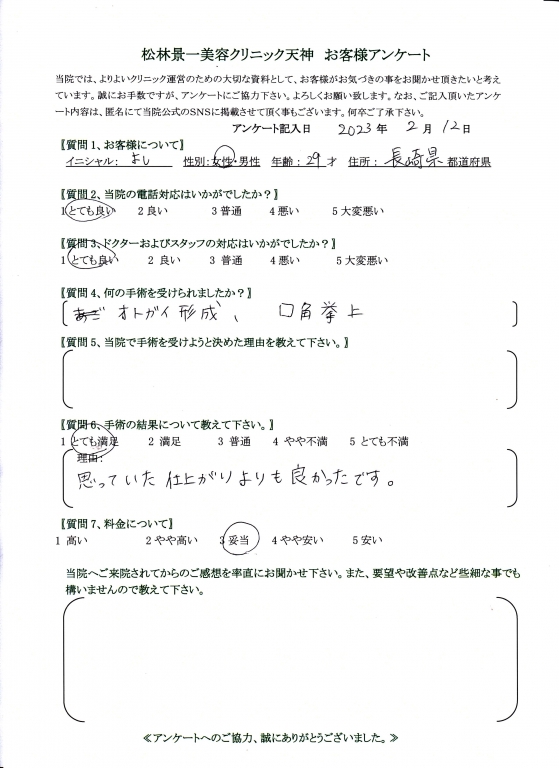 松林景一美容クリニック天神　お客様アンケート
当院では、よりよいクリニック運営のための大切な資料として、お客様がお気づきの事をお聞かせ頂きたいと考え
ています。誠にお手数ですが、アンケートにご協力下さい。よろしくお願い致します。なお、ご記入頂いたアンケ
ート内容は、匿名にて当院公式のSNSに掲載させて頂く事もございます。何卒ご了承下さい。
アンケート記入日　2023年　2月　12日
〖質問1、お客様について〗
イニシャル：　よし　性別：女性・男性　年齢：29才　住所：　長崎県　都道府県
〖質問2、当院の電話対応はいかがでしたか？〗
1 とても良い　2 良い　3 普通　4 悪い　5 大変悪い
〖質問3、ドクターおよびスタッフの対応はいかがでしたか？〗
1 とても良い　2 良い　3 普通　4 悪い　5 大変悪い
〖質問4、何の手術を受けられましたか？〗
あご オトガイ形成、　口角挙上
〖質問5、当院で手術を受けようと決めた理由を教えて下さい。〗
〖質問6、手術の結果について教えて下さい。〗
1 とても満足　2 満足　3 普通　4 やや不満　5 とても不満
理由：
思っていた仕上がりよりも良かったです。
〖質問7、料金について〗
1 高い　2 やや高い　3 妥当　4 やや安い　5 安い
当院へご来院されてからのご感想を率直にお聞かせ下さい。また、要望や改善点など些細な事でも
構いませんので教えて下さい。
≪アンケートへのご協力、誠にありがとうございました。≫